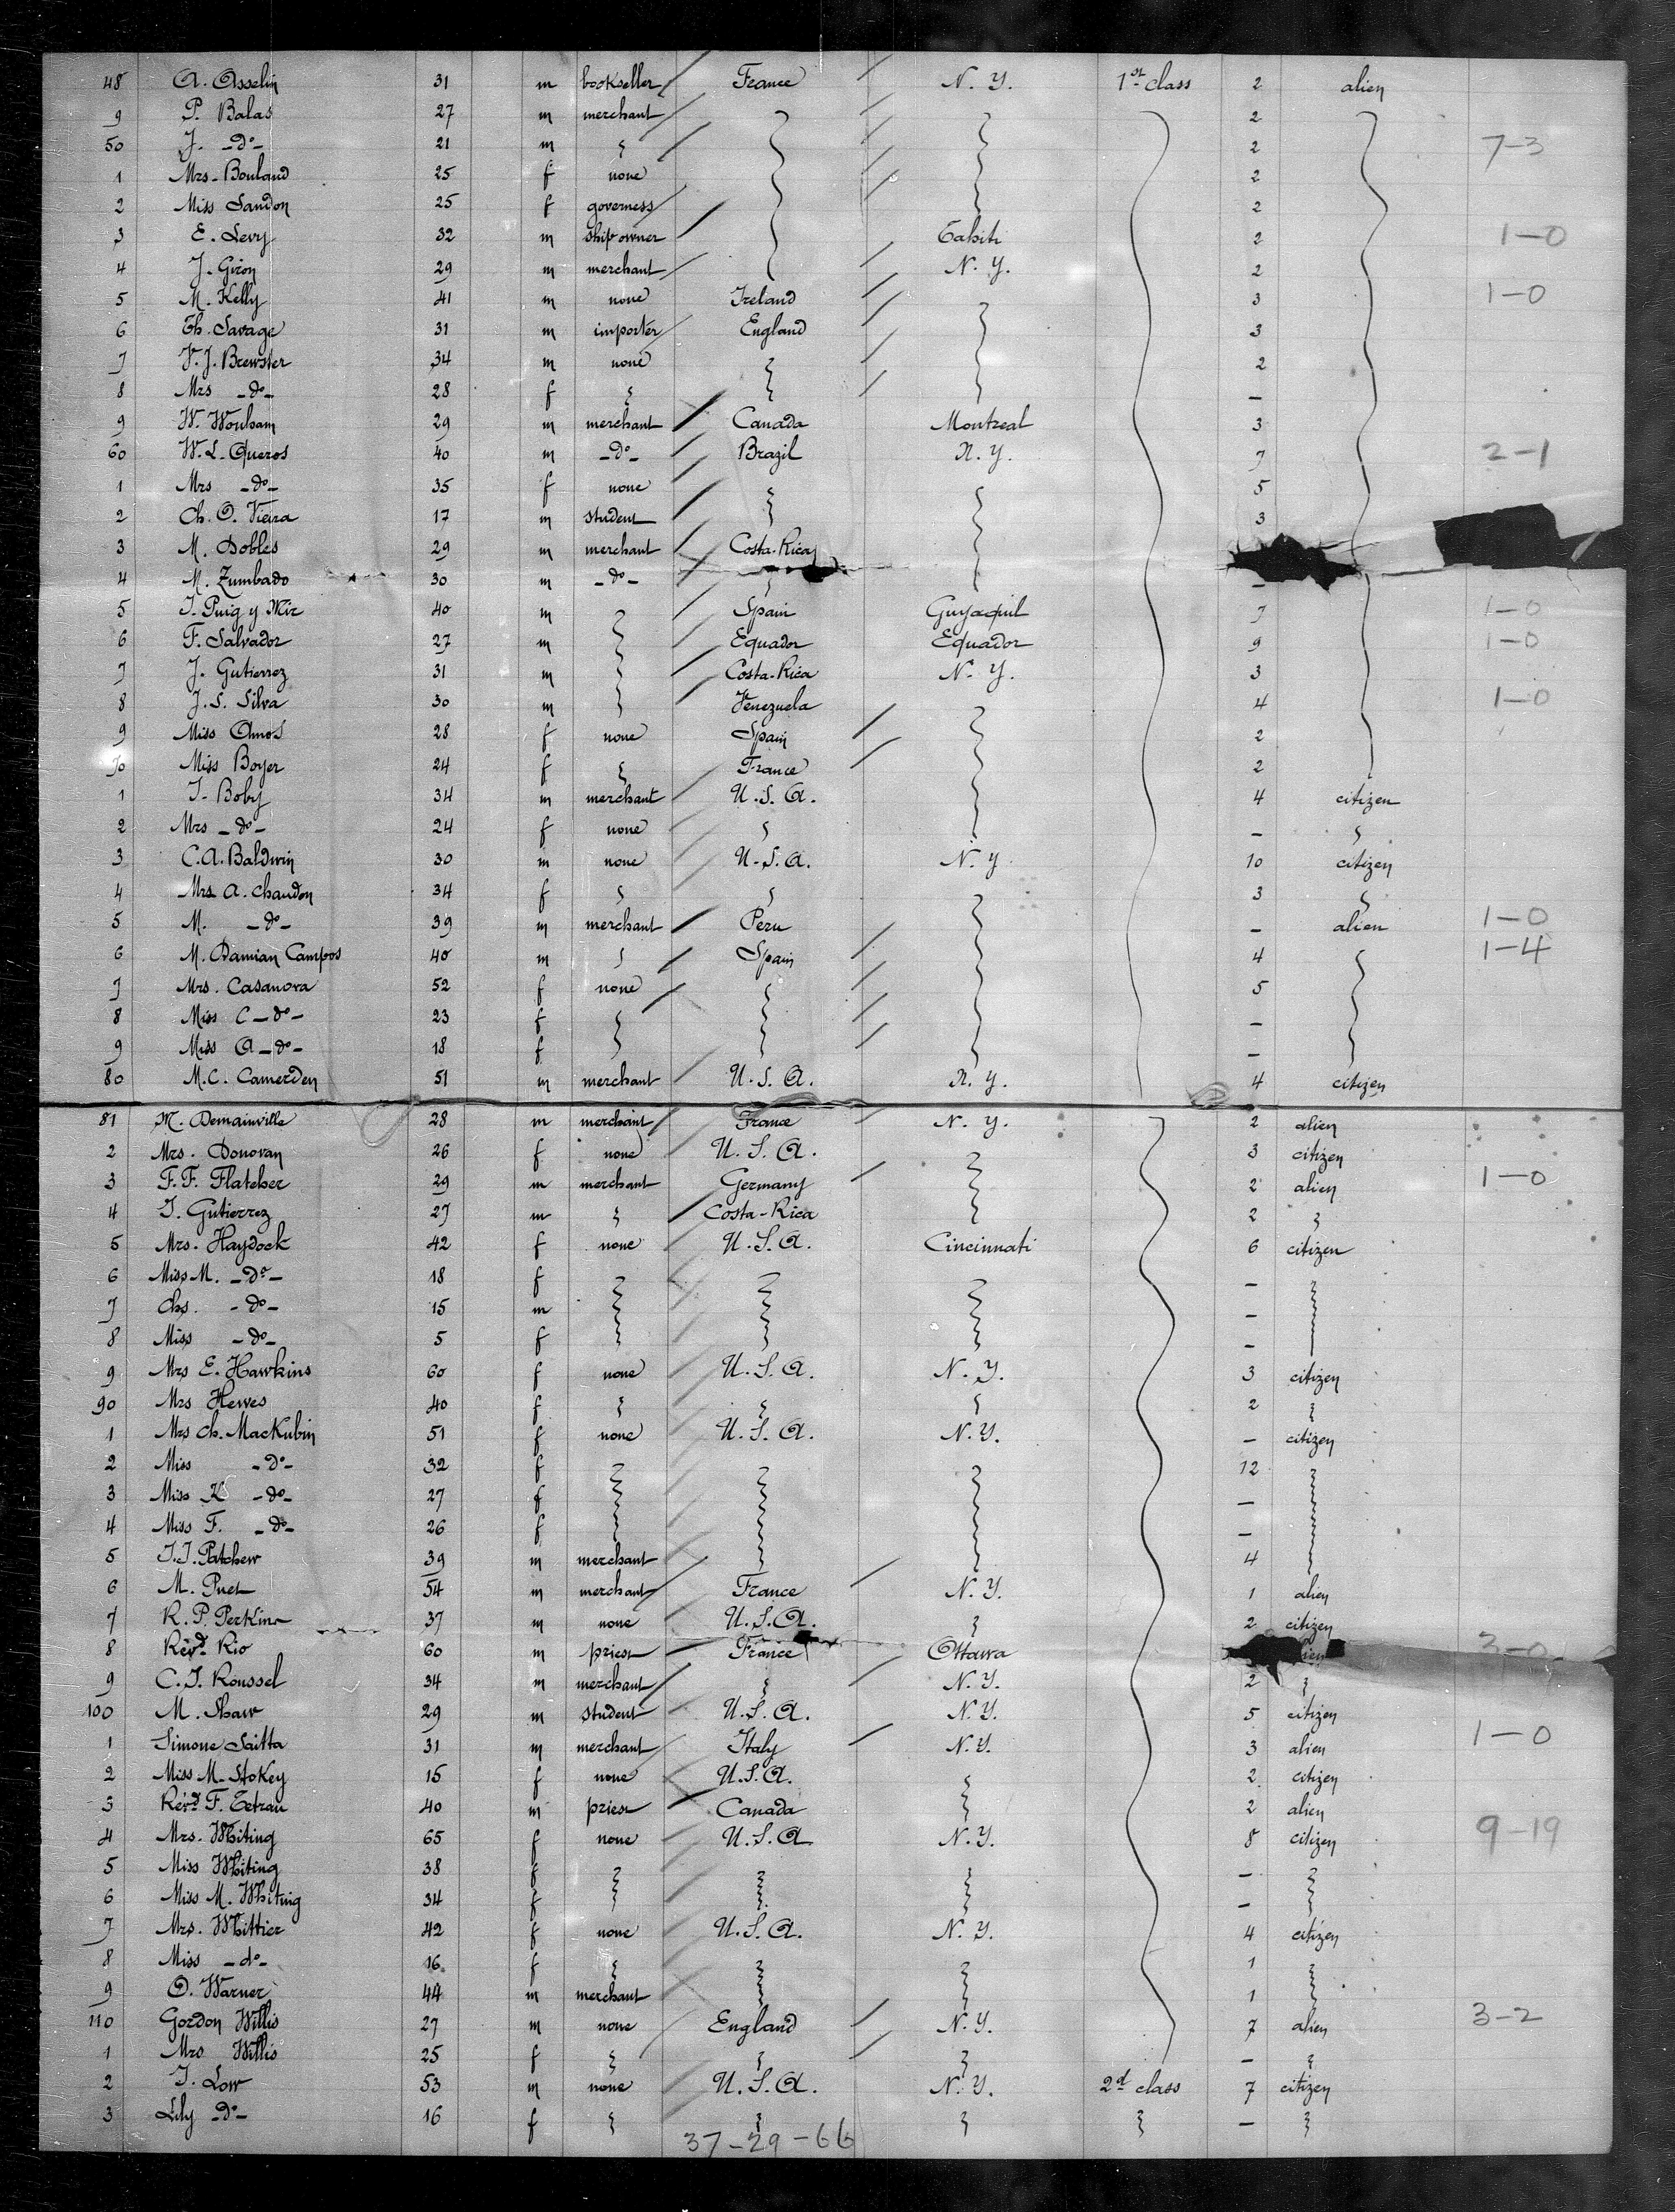 48 A. Asselin 31 m bookseller France N. Y. 1st class 2 alien
9 P. Balas 27 m merchant 2
50 J. -do- 21 m 2 7-3
1 Mrs. Bouland 25 f none 2
2 Miss Landon 25 f governess 2
3 E. Levy 32 m ship owner Tahiti 2 1-0
4 J. Giron 29 m merchant N. Y. 2
5 M. Kelly 41 m none Ireland 3 1-0
6 Th. Savage 31 m importer England 3
7 V. J. Brewster 34 m none 2
8 Mrs -do- 28 f -
9 W. Wonham 29 m merchant Canada Montreal 3
60 W. L. Queros 40 m -do- Brazil N. Y. 7 2-1
1 Mrs -do- 35 f none 5
2 Ch. O. Vieira 17 m student 3
3 M. Dobles 29 m merchant Costa-Rica
4 M. Zumbado 30 m -do- -
5 J. Puig y Mir 40 m Spain Guyaquil 7 1-0
6 F. Salvador 27 m Equador Equador 9 1-0
7 J. Gutierrez 31 m Costa-Rica N. Y. 3
8 J. S. Silva 30 m Venezuela 4 1-0
9 Miss Amos 28 f none Spain 2
70 Miss Boyer 24 f France 2
1 J. Boby 34 m merchant U. S. A. 4 citizen
2 Mrs -do- 24 f none -
3 C. A. Baldwin 30 m none U. S. A. N. Y. 10 citizen
4 Mrs A. Chaudon 34 f 3
5 M. -do- 39 m merchant Peru - alien 1-0
6 M. Damian Campos 40 m Spain 4 1-4
7 Mrs. Casanova 52 f none 5
8 Miss C -do- 23 f -
9 Miss A -do- 18 f -
80 M. C. Camerden 51 m merchant U. S. A. N. Y. 4 citizen
81 M. Demainville 28 m merchant France N. Y. 2 alien
2 Mrs. Donovan 26 f none U. S. A. 3 citizen
3 F. F. Flatcher 29 m merchant Germany 2 alien 1-0
4 J. Gutierrez 27 m Costa-Rica 2
5 Mrs. Haydock 42 f none U. S. A. Cincinnati 6 citizen
6 Miss M. -do- 18 f -
7 Chs. -do- 15 m -
8 Miss -do- 5 f -
9 Mrs E. Hawkins 60 f none U. S. A. N. Y. 3 citizen
90 Mrs Hewes 40 f 2
1 Mrs Ch. MacKubin 51 f none U. S. A. N. Y. - citizen
2 Miss -do- 32 f 12
3 Miss K -do- 27 f -
4 Miss F. -do- 26 f -
5 J. J. Patchew 39 m merchant 4
6 M. Puet 54 m merchant France N. Y. 1 alien
7 R. P. Perkins 37 m none U. S. A. 2 citizen
8 Revd. Rio 60 m priest France Ottawa 3-0
9 C. J. Roussel 34 m merchant N. Y. 2
100 M. Shaw 29 m student U. S. A. N. Y. 5 citizen
1 Simone Saitta 31 m merchant Italy N. Y. 3 alien 1-0
2 Miss M. Stokey 15 f none U. S. A. 2 citizen
3 Revd. F. Tetrau 40 m priest Canada 2 alien
4 Mrs. Whiting 65 f none U. S. A. N. Y. 8 citizen 9-19
5 Miss Whiting 38 f -
6 Miss M. Whiting 34 f -
7 Mrs. Whittier 42 f none U. S. A. N. Y. 4 citizen
8 Miss -do- 16 f 1
9 O. Warner 44 m merchant 1
110 Gordon Willis 27 m none England N. Y. 7 alien 3-2
1 Mrs Willis 25 f -
2 J. Low 53 m none U. S. A. N. Y. 2d class 7 citizen
3 Lily -do- 16 f -
37-29-66